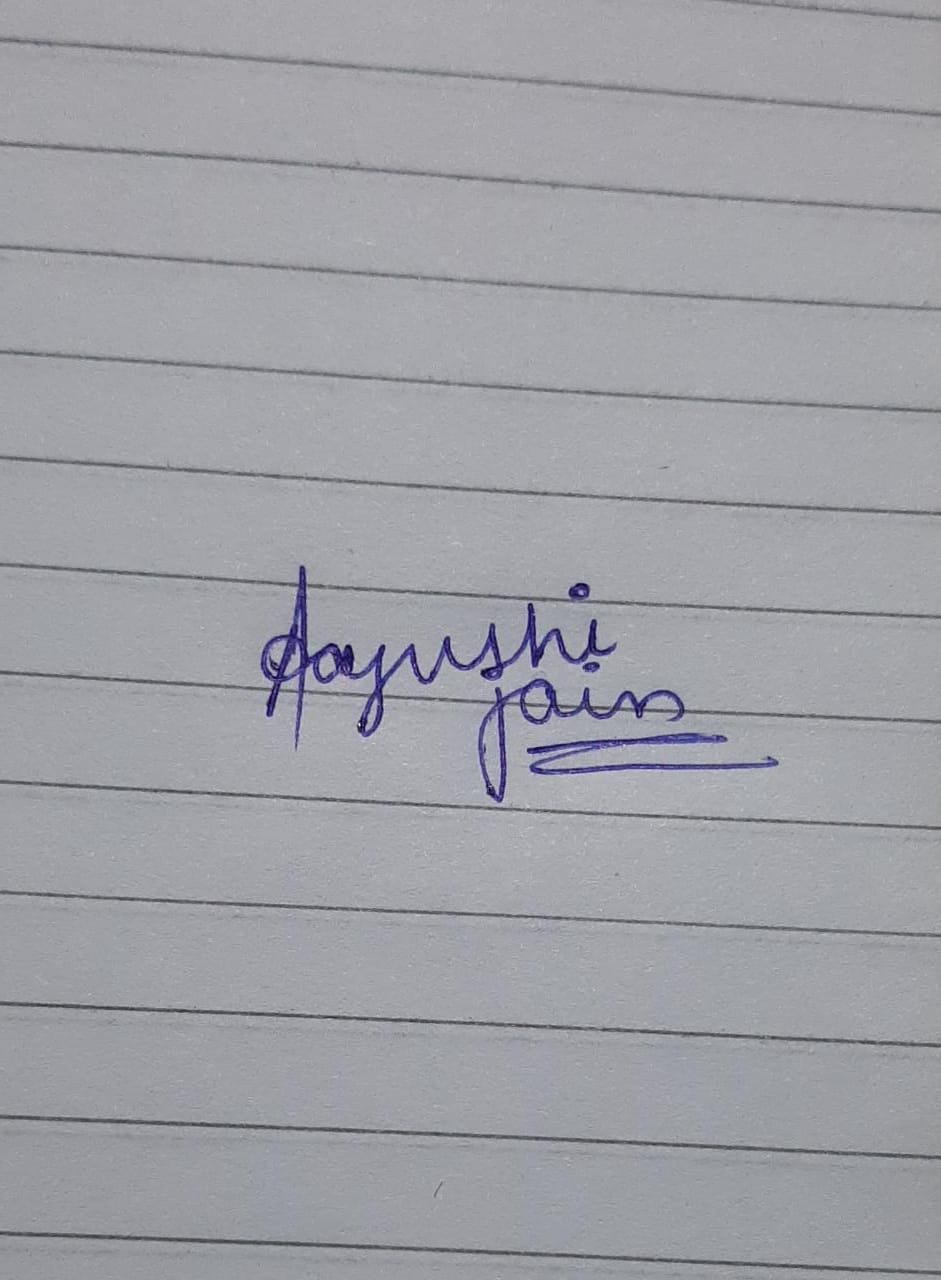 Aayushi
jain